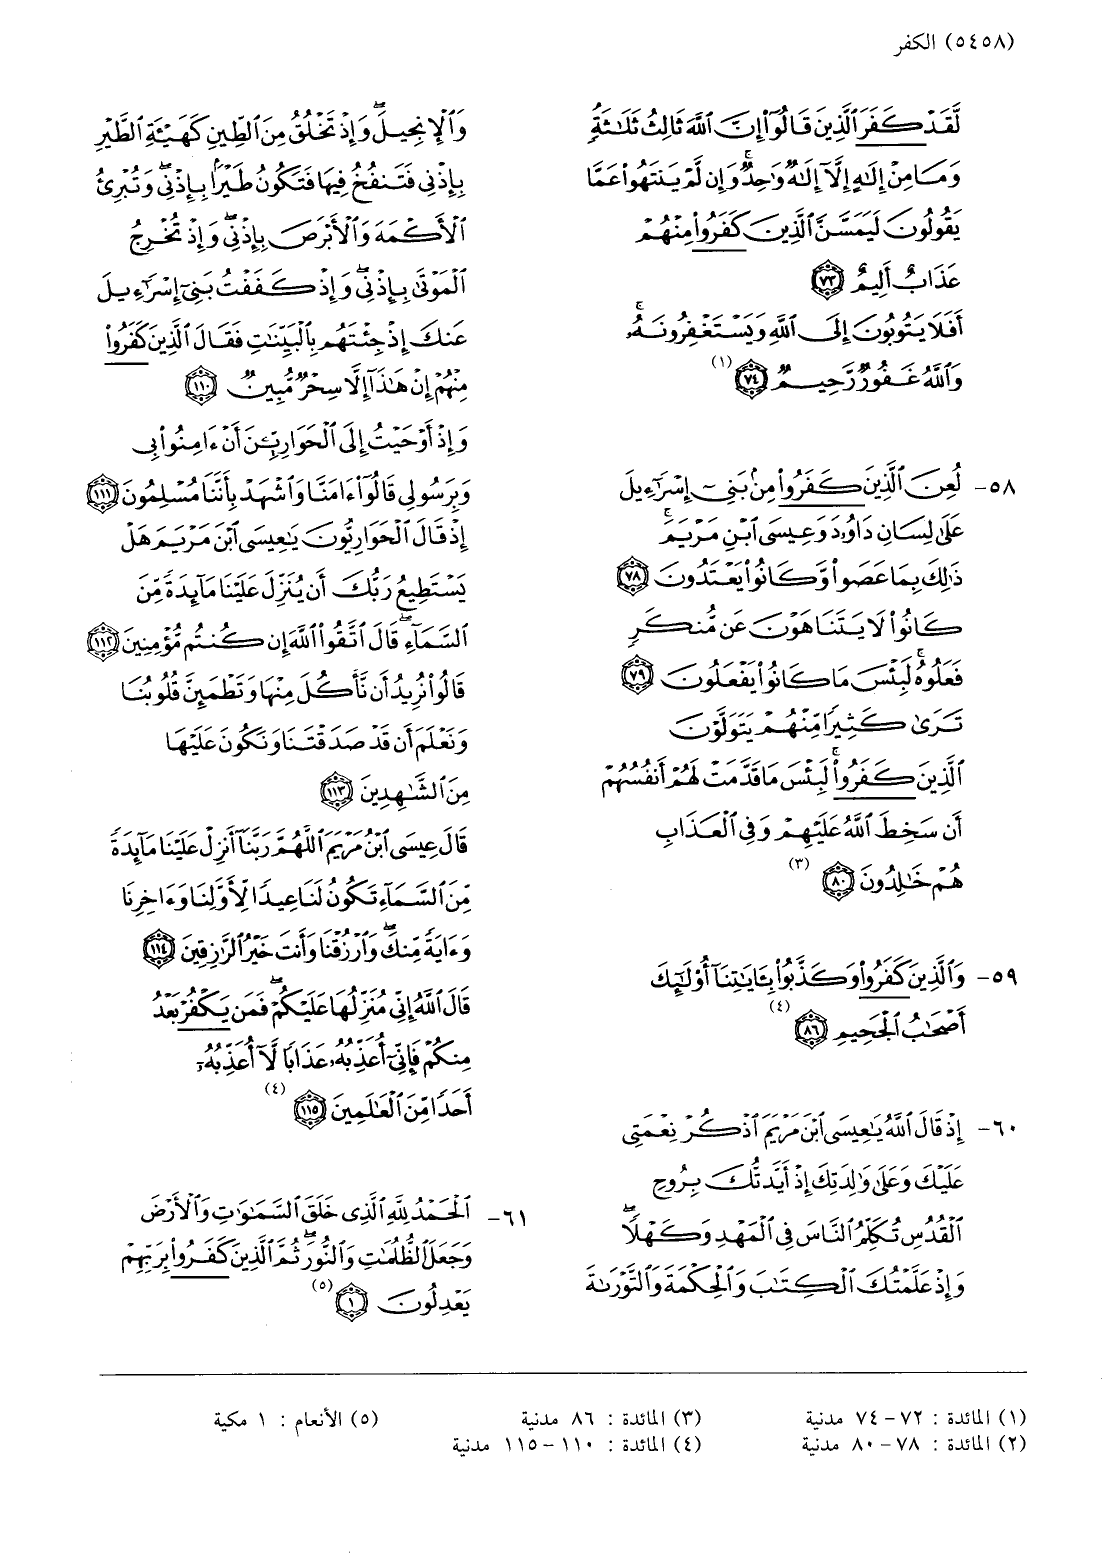 (٥٤٥٨) الكفر
لَّقَدْ كَفَرَ ٱلَّذِينَ قَالُوٓا۟ إِنَّ ٱللَّهَ ثَالِثُ ثَلَٰثَةٍ
وَمَا مِنْ إِلَٰهٍ إِلَّآ إِلَٰهٌ وَٰحِدٌ ۚ وَإِن لَّمْ يَنتَهُوا۟ عَمَّا
يَقُولُونَ لَيَمَسَّنَّ ٱلَّذِينَ كَفَرُوا۟ مِنْهُمْ
عَذَابٌ أَلِيمٌ ٧٣
أَفَلَا يَتُوبُونَ إِلَى ٱللَّهِ وَيَسْتَغْفِرُونَهُۥ ۚ
وَٱللَّهُ غَفُورٌ رَّحِيمٌ ٧٤ (١)
٥٨- لُعِنَ ٱلَّذِينَ كَفَرُوا۟ مِنۢ بَنِىٓ إِسْرَٰٓءِيلَ
عَلَىٰ لِسَانِ دَاوُۥدَ وَعِيسَى ٱبْنِ مَرْيَمَ ۚ
ذَٰلِكَ بِمَا عَصَوا۟ وَّكَانُوا۟ يَعْتَدُونَ ٧٨
كَانُوا۟ لَا يَتَنَاهَوْنَ عَن مُّنكَرٍ
فَعَلُوهُ ۚ لَبِئْسَ مَا كَانُوا۟ يَفْعَلُونَ ٧٩
تَرَىٰ كَثِيرًا مِّنْهُمْ يَتَوَلَّوْنَ
ٱلَّذِينَ كَفَرُوا۟ ۚ لَبِئْسَ مَا قَدَّمَتْ لَهُمْ أَنفُسُهُمْ
أَن سَخِطَ ٱللَّهُ عَلَيْهِمْ وَفِى ٱلْعَذَابِ
هُمْ خَٰلِدُونَ ٨٠ (٣)
٥٩- وَٱلَّذِينَ كَفَرُوا۟ وَكَذَّبُوا۟ بِـَٔايَٰتِنَآ أُو۟لَٰٓئِكَ
أَصْحَٰبُ ٱلْجَحِيمِ ٨٦ (٤)
٦٠- إِذْ قَالَ ٱللَّهُ يَٰعِيسَى ٱبْنَ مَرْيَمَ ٱذْكُرْ نِعْمَتِى
عَلَيْكَ وَعَلَىٰ وَٰلِدَتِكَ إِذْ أَيَّدتُّكَ بِرُوحِ
ٱلْقُدُسِ تُكَلِّمُ ٱلنَّاسَ فِى ٱلْمَهْدِ وَكَهْلًا ۖ
وَإِذْ عَلَّمْتُكَ ٱلْكِتَٰبَ وَٱلْحِكْمَةَ وَٱلتَّوْرَىٰةَ
وَٱلْإِنجِيلَ ۖ وَإِذْ تَخْلُقُ مِنَ ٱلطِّينِ كَهَيْـَٔةِ ٱلطَّيْرِ
بِإِذْنِى فَتَنفُخُ فِيهَا فَتَكُونُ طَيْرًۢا بِإِذْنِى ۖ وَتُبْرِئُ
ٱلْأَكْمَهَ وَٱلْأَبْرَصَ بِإِذْنِى ۖ وَإِذْ تُخْرِجُ
ٱلْمَوْتَىٰ بِإِذْنِى ۖ وَإِذْ كَفَفْتُ بَنِىٓ إِسْرَٰٓءِيلَ
عَنكَ إِذْ جِئْتَهُم بِٱلْبَيِّنَٰتِ فَقَالَ ٱلَّذِينَ كَفَرُوا۟
مِنْهُمْ إِنْ هَٰذَآ إِلَّا سِحْرٌ مُّبِينٌ ١١٠
وَإِذْ أَوْحَيْتُ إِلَى ٱلْحَوَارِيِّـۧنَ أَنْ ءَامِنُوا۟ بِى
وَبِرَسُولِى قَالُوٓا۟ ءَامَنَّا وَٱشْهَدْ بِأَنَّنَا مُسْلِمُونَ ١١١
إِذْ قَالَ ٱلْحَوَارِيُّونَ يَٰعِيسَى ٱبْنَ مَرْيَمَ هَلْ
يَسْتَطِيعُ رَبُّكَ أَن يُنَزِّلَ عَلَيْنَا مَآئِدَةً مِّنَ
ٱلسَّمَآءِ ۖ قَالَ ٱتَّقُوا۟ ٱللَّهَ إِن كُنتُم مُّؤْمِنِينَ ١١٢
قَالُوا۟ نُرِيدُ أَن نَّأْكُلَ مِنْهَا وَتَطْمَئِنَّ قُلُوبُنَا
وَنَعْلَمَ أَن قَدْ صَدَقْتَنَا وَنَكُونَ عَلَيْهَا
مِنَ ٱلشَّٰهِدِينَ ١١٣
قَالَ عِيسَى ٱبْنُ مَرْيَمَ ٱللَّهُمَّ رَبَّنَآ أَنزِلْ عَلَيْنَا مَآئِدَةً
مِّنَ ٱلسَّمَآءِ تَكُونُ لَنَا عِيدًا لِّأَوَّلِنَا وَءَاخِرِنَا
وَءَايَةً مِّنكَ ۖ وَٱرْزُقْنَا وَأَنتَ خَيْرُ ٱلرَّٰزِقِينَ ١١٤
قَالَ ٱللَّهُ إِنِّى مُنَزِّلُهَا عَلَيْكُمْ ۖ فَمَن يَكْفُرْ بَعْدُ
مِنكُمْ فَإِنِّىٓ أُعَذِّبُهُۥ عَذَابًا لَّآ أُعَذِّبُهُۥٓ
أَحَدًا مِّنَ ٱلْعَٰلَمِينَ ١١٥ (٤)
٦١- ٱلْحَمْدُ لِلَّهِ ٱلَّذِى خَلَقَ ٱلسَّمَٰوَٰتِ وَٱلْأَرْضَ
وَجَعَلَ ٱلظُّلُمَٰتِ وَٱلنُّورَ ۖ ثُمَّ ٱلَّذِينَ كَفَرُوا۟ بِرَبِّهِمْ
يَعْدِلُونَ ١ (٥)
(١) المائدة : ٧٢-٧٤ مدنية
(٢) المائدة : ٧٨-٨٠ مدنية
(٣) المائدة : ٨٦ مدنية
(٤) المائدة : ١١٠-١١٥ مدنية
(٥) الأنعام : ١ مكية